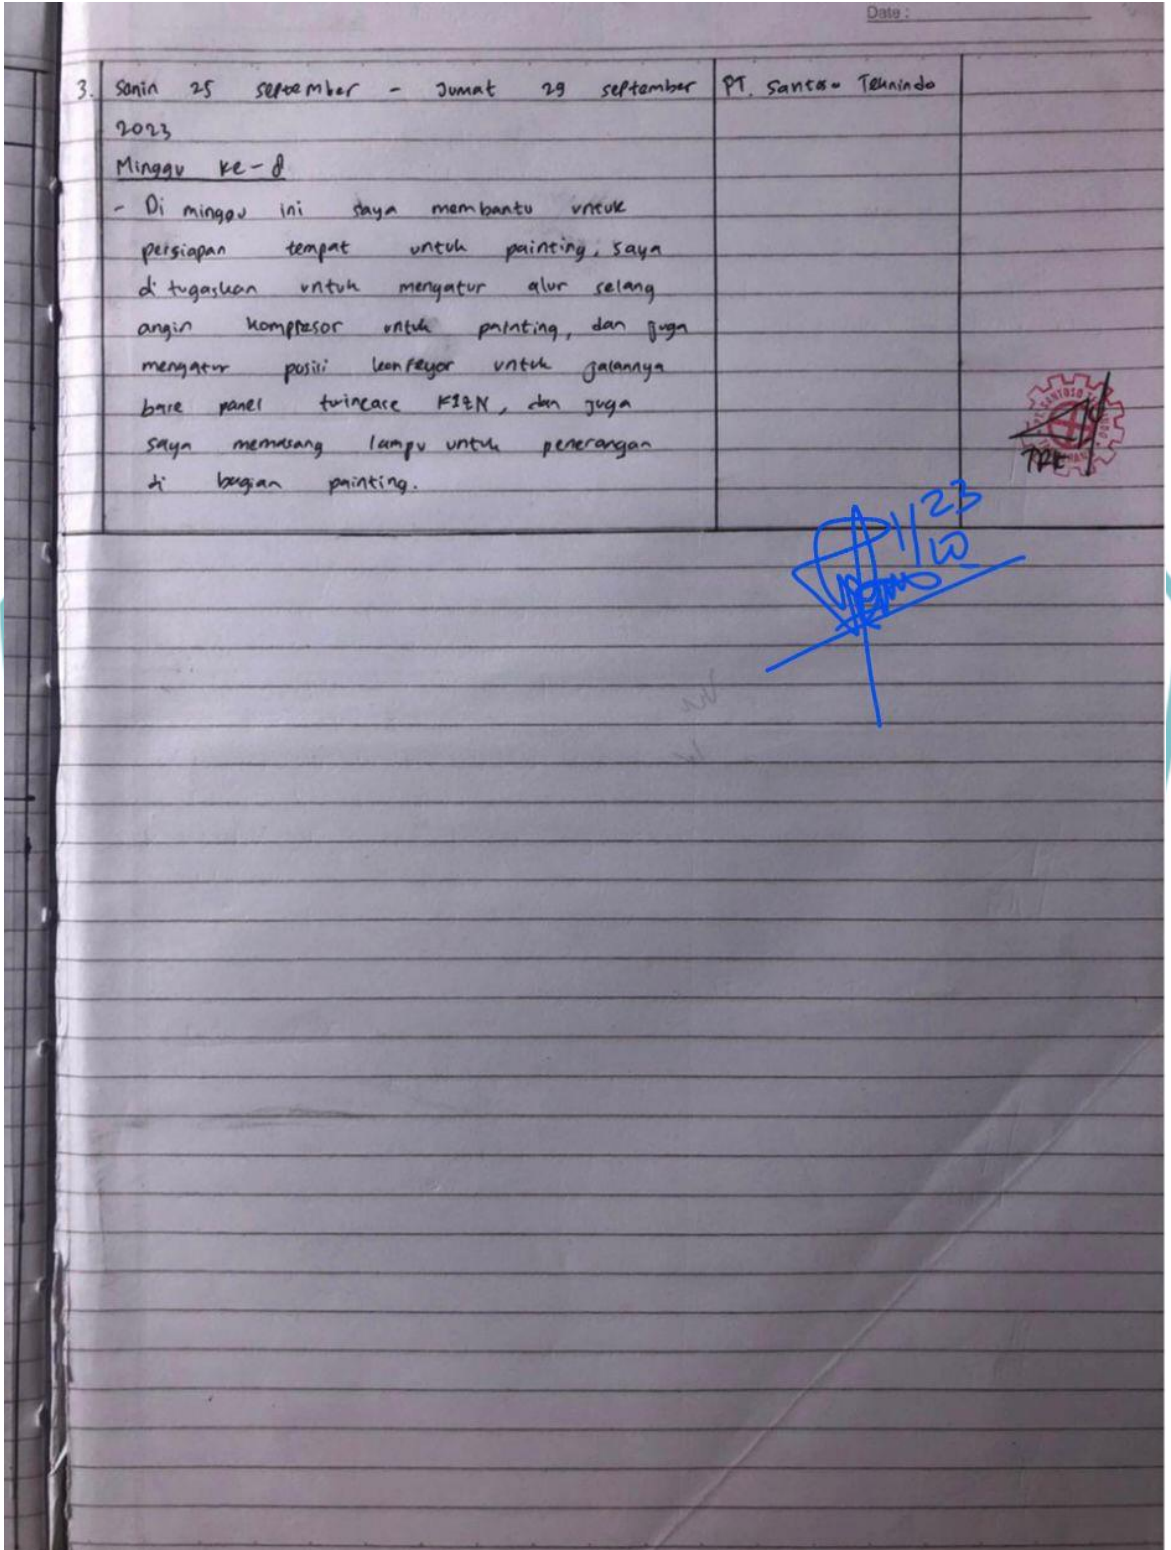 Date :
3. Senin 25 september - Jumat 29 september PT. Santoso Teknindo
2023
Minggu ke-8
- Di minggu ini saya membantu untuk
persiapan tempat untuk painting, saya
di tugaskan untuk mengatur alur selang
angin kompresor untuk painting, dan juga
mengatur posisi konfeyor untuk jalannya
bare panel twincase
, dan juga
saya memasang lampu untuk penerangan
di bagian painting.
SANTOSO
TRE
1/23
10